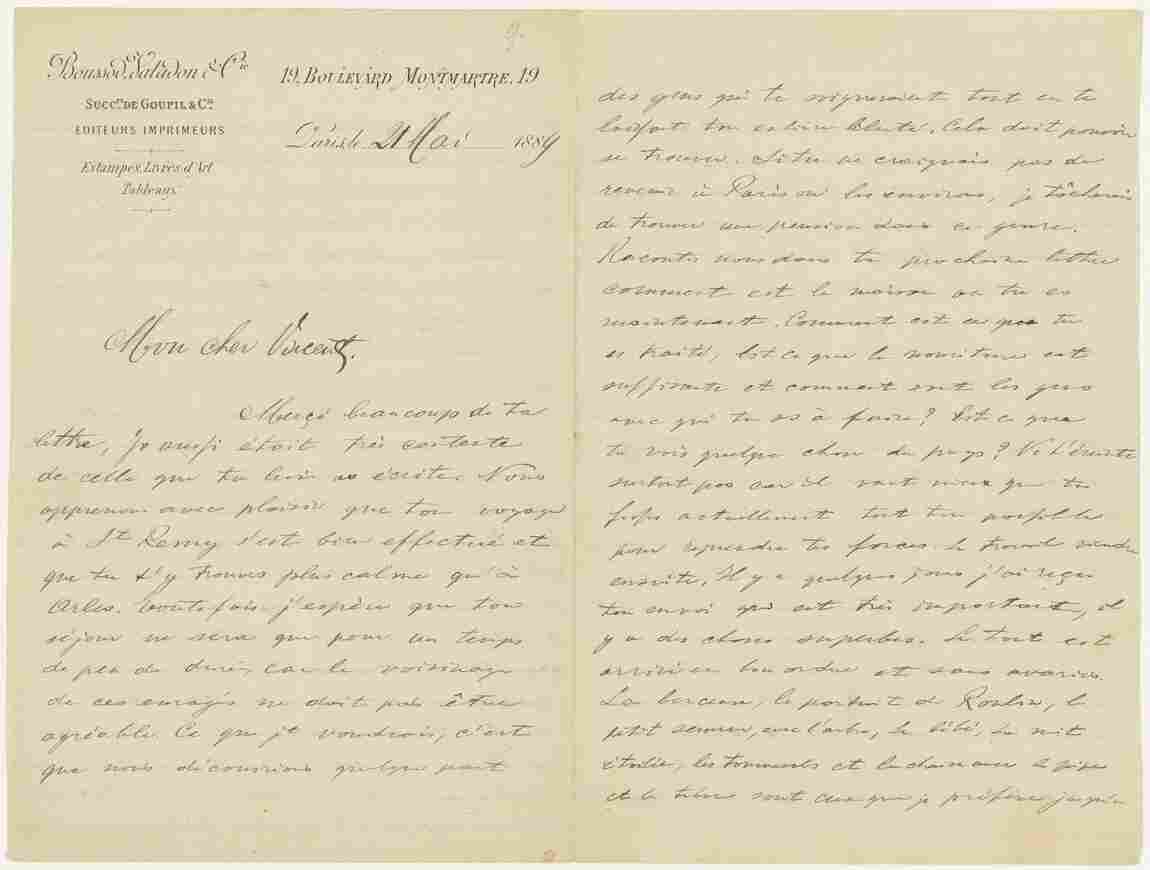 9.
Boussod, Valadon & Cie
Succrs. de Goupil & Cie
Editeurs Imprimeurs
Estampes, Livres d'Art
Tableaux
19, Boulevard Montmartre, 19
Paris, le 21 Mai 1889
Mon cher Vincent.
Merçi beaucoup de ta
lettre, Jo aussi était très contente
de celle que tu lui as écrite. Nous
apprenons avec plaisir que ton voyage
à St Remy s'est bien effectué et
que tu t'y trouves plus calme qu'à
Arles. Toutefois j'espère que ton
séjour ne sera que pour un temps
de peu de durée, car le voisinage
de ces enragés ne doit pas être
agréable. Ce que je voudrais, c'est
que nous découvrions quelque part
des gens qui te soigneraient tout en te
laissant ton entière liberté. Cela doit pouvoir
se trouver. Si tu ne craignais pas de
revenir à Paris ou les environs, je tâcherais
de trouver une pension dans ce genre.
Racontes nous dans ta prochaine lettre
comment est la maison où tu es
maintenant. Comment est ce que tu
es traité, Est ce que la nouriture est
suffisante et comment sont les gens
avec qui tu as à faire? Est ce que
tu vois quelque chose du pays? Ne t'éreinte
surtout pas car il vaut mieux que tu
fasses actuellement tout ton possible
pour reprendre tes forces. Le travail viendra
ensuite. Il y a quelques jours j'ai reçu
ton envoi qui est très important, il
y a des choses superbes. Le tout est
arrivé en bon ordre et sans avaries.
La berceuse, le portrait de Roulin, le
petit semeur avec l'arbre, le bébé, la nuit
étoilée, les tournesols et la chaise avec la pipe
et le tabac sont ceux que je préfère jusqu'à